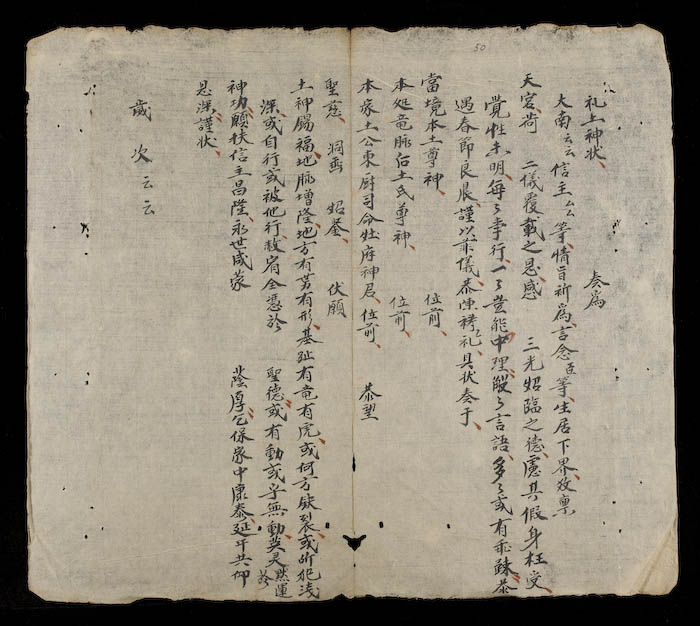 50
礼土神状 奏為
大南云云信主厶厶等情旨祈為言念臣等生居下界
天宮荷 二儀覆載之恩感 三光炤臨之德慮其假身枉受
覺性未明每〻幸行一〻豈能中理般〻言語多〻或有乖疎恭
遇春節良晨謹以菲儀恭陳礼具状奏于
當境本土尊神 位前
本処竜脉后土氏尊神 位前
本家土公東厨司命灶府神君位前 恭望
聖慈 洞垂 炤鑒 伏願
土神賜福地脉增隆地方有勢有形基趾有竜有虎或何方缺裂或所犯浅
深或自行或被他行赦宥全憑於 聖德或有動或乎無動英灵默運於
神功願扶信主昌隆永世咸蒙 蔭厚乞保家中康泰延年共仰
恩深謹状
歲次云云